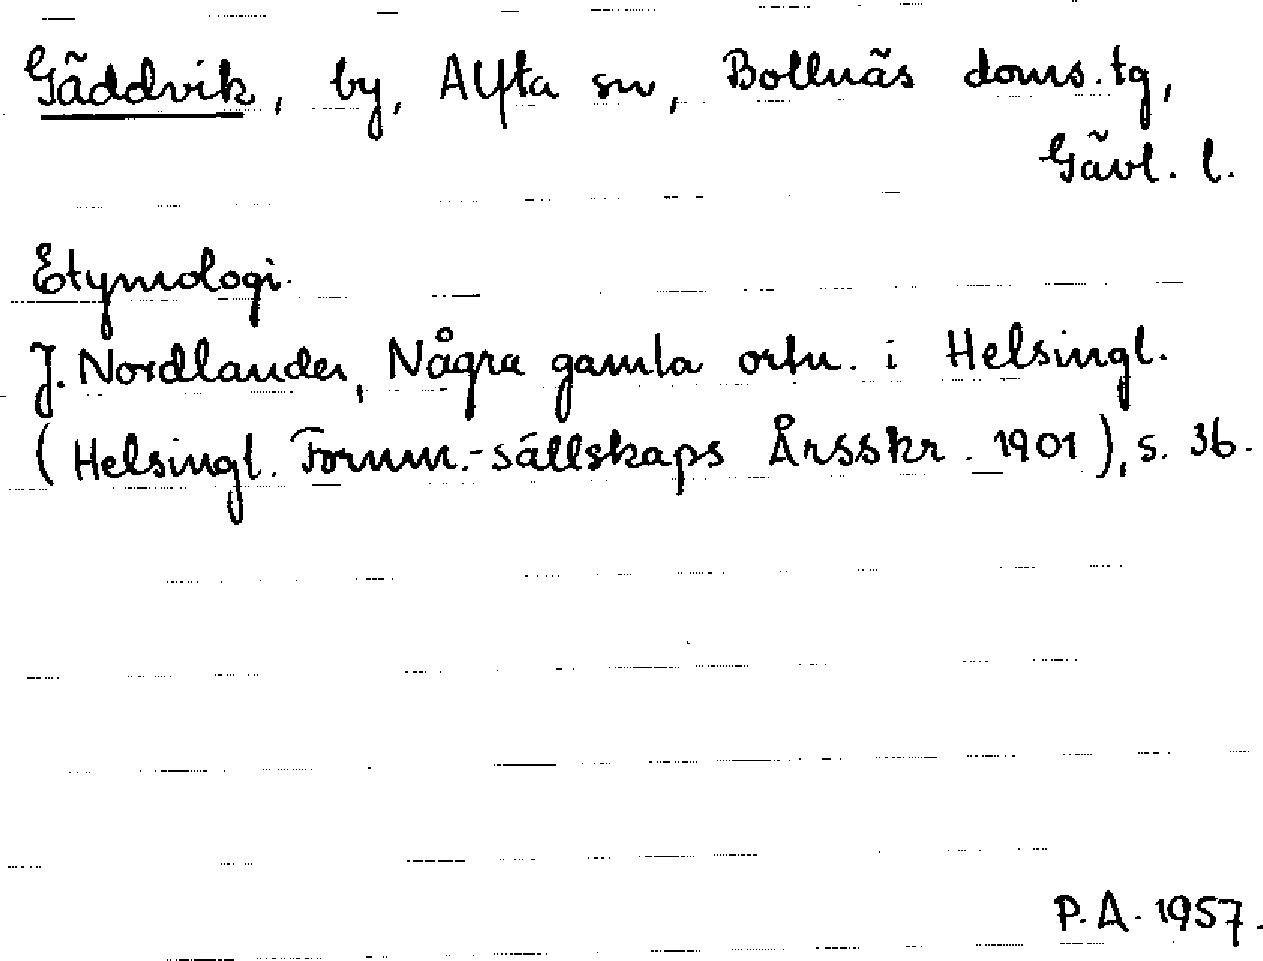 Gäddvik, by, Alfta sn, Bollnäs doms.tg,
Gävl. l.
Etymologi.
J. Nordlander, Några gamla ortn. i Helsingl.
(Helsingl. Fornm.-sällskaps Årsskr. 1901), s. 36.
P.A. 1957.